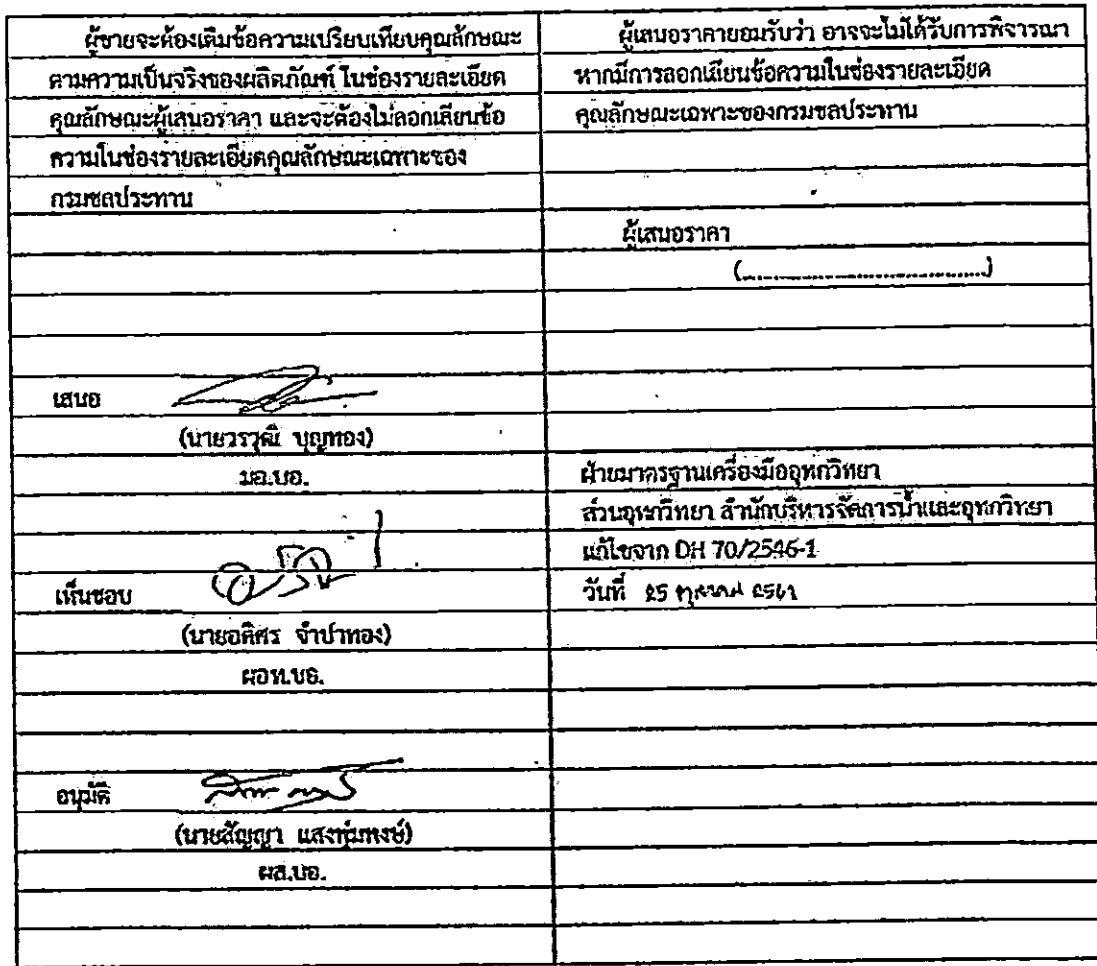 ผู้ขายจะต้องเติมข้อความเปรียบเทียบคุณลักษณะ
ตามความเป็นจริงของผลิตภัณฑ์ ในช่องรายละเอียด
คุณลักษณะผู้เสนอราคา และจะต้องไม่ลอกเลียนข้อ
ความในช่องรายละเอียดคุณลักษณะเฉพาะของ
กรมชลประทาน
เสนอ
(นายวรวุฒิ บุญทอง)
มอ.บอ.
เห็นชอบ
(นายอดิศร จำปาทอง)
ผอท.บอ.
อนุมัติ
(นายสัญญา แสงพุ่มพงษ์)
ผส.บอ.
ผู้เสนอราคายอมรับว่า อาจจะไม่ได้รับการพิจารณา
หากมีการลอกเลียนข้อความในช่องรายละเอียด
คุณลักษณะเฉพาะของกรมชลประทาน
ผู้เสนอราคา
(........................................)
ฝ่ายมาตรฐานเครื่องมืออุทกวิทยา
ส่วนอุทกวิทยา สำนักบริหารจัดการน้ำและอุทกวิทยา
แก้ไขจาก DH 70/2546-1
วันที่ 25 ตุลาคม 2561